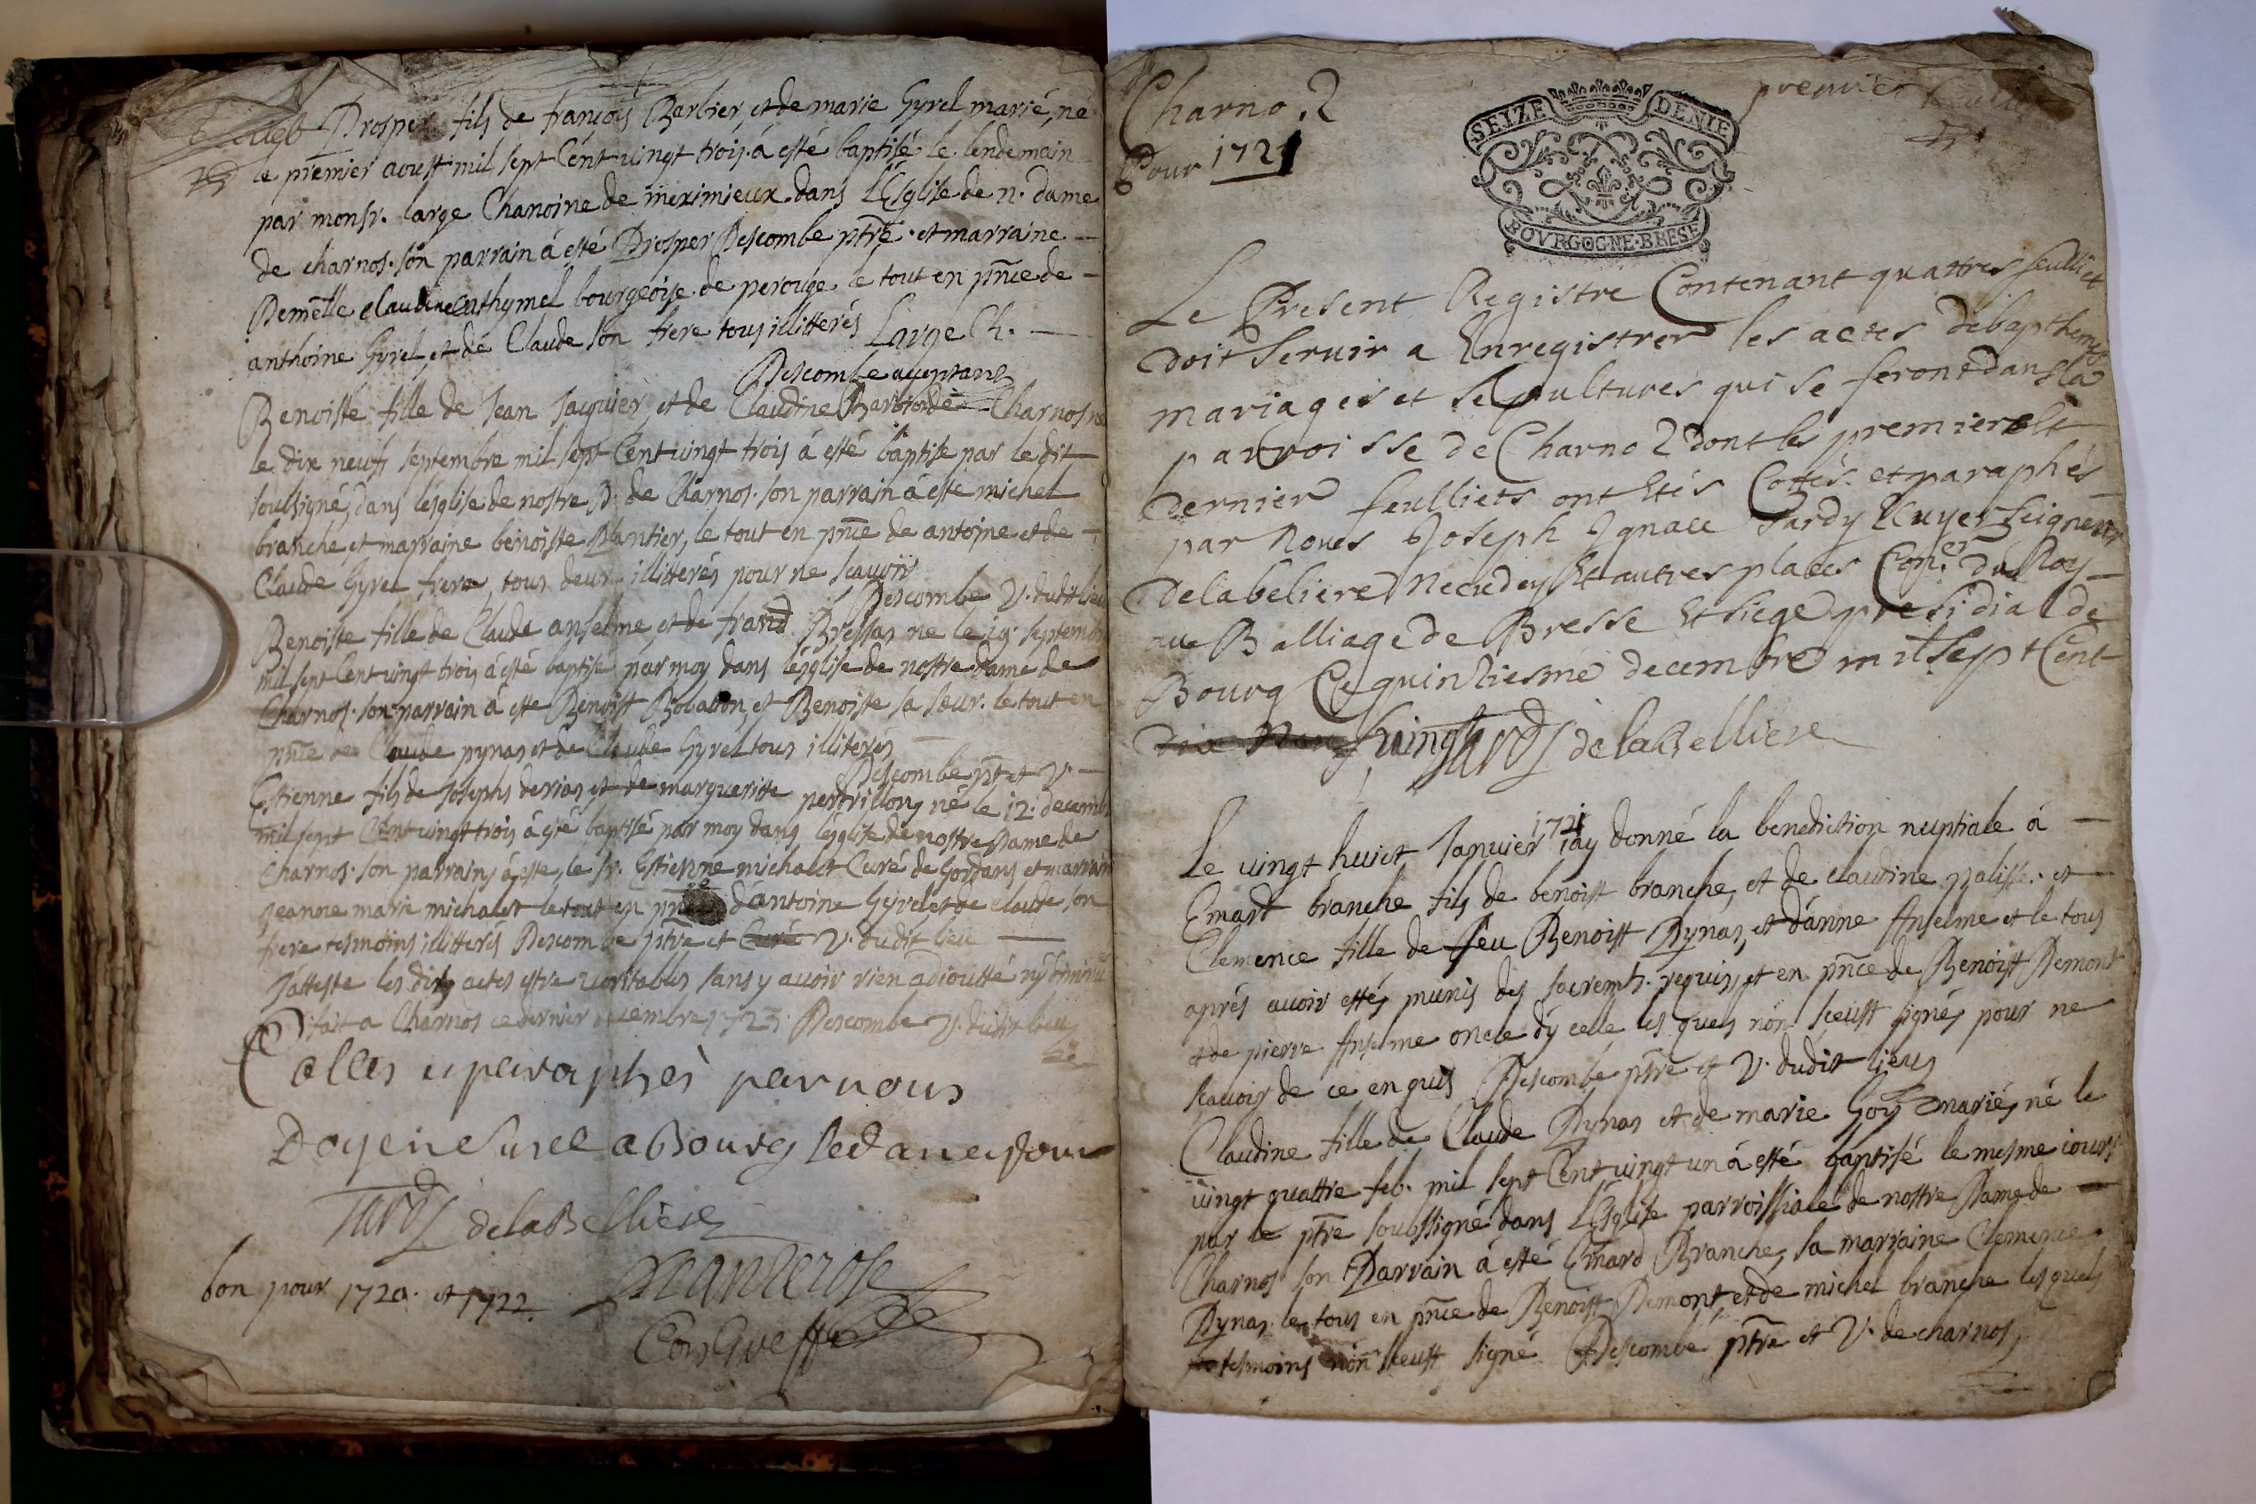 Prosper fils de françois Barbier, et de marie Gyrel marié, né
le premier aoust mil sept Cent vingt trois á esté baptisé le lendemain
par monsr. large Chanoine de meximieux dans L'Eglise de n. dame
de charnos. son parrain á esté Prosper Descombe ptre. et marraine
Demelle claudine bourgeoise de perouge le tout en pnce de
anthoine Gyrel, et de Claude son frere tous illitterés Large Ch.
Descombe acceptans
Benoiste fille de Jean Jacquier, et de Claudine de Charnos
le dix neufs septembre mil sept Cent vingt trois á esté baptise par le dit
soussigné, dans l'esglise de nostre D. de Charnos. son parrain á esté michel
branche et marraine benoiste Plantier, le tout en pnce de antoine et de
Claude Gyrel frere, tous deux illitterés pour ne scavoir
Descombe V. dudit lieu
Benoiste fille de Claude anselme, et de Bressan ne le 19. septembre
mil sept Cent vingt trois á esté baptisé par moy dans l'esglise de nostre dame de
Charnos. son parrain á este Benoist et Benoiste sa seur. le tout en
pnce de Claude pynas et de Claude Gyrel tous illiterés
Descombe pt et V.
Estienne fils de Josephs et de margueritte né le 12. decembre
mil sept Cent vingt trois á esté baptisé par moy dans l'esglise de nostre Dame de
Charnos. son parrains á esté, le sr. Estienne michalet Curé de Gordans et marraine
Jeanne marie michalet le tout en d'antoine Gyrel et de claude son
frere tesmoins illitterés Descombe ptre et Curé V. dudit lieu
J'atteste les dits actes estre veritables sans y avoir rien adioutté ny
fait a Charnos ce dernier decembre 1723. Descombe V. dudit lieu
Cottes et paraphes par nous
Doyen Bourg
Tardy delaBelliere
bon pour 1720. et 1722.
Charno 2
Pour 1721
premier
SEIZE DENIE
BOVRGOGNE·BRESE
Le Present Registre Contenant quattres feulliet
doit servir a Enregistrer les actes debapthemes
mariages et sepultures qui se feront dans la
parroisse de Charno 2 dont les premier et
dernier feulliets ont Etés Cottés et paraphés
par Noues Joseph Ignace Tardy Ecuyer seigneur
Delabeliere Et autres places Coner. du Roy
au Balliage de Bresse Et siege presidial de
Bourg Ce quinziesme decembre mil sept Cent
vingt Tardy delaBelliere
Le vingt huict Janvier 1721 iay donné la benediction nuptiale á
Emard branche fils de benoist branche, et de claudine palisse. et
Clemence fille de feu Benoist Pynas, et d'anne Anselme et le tous
aprés avoir estés munis des sacremts. requis, et en pnce de Benoist Demont
et de pierre Anselme oncle d'y celle les quels nön sceust signés pour ne
scavoir de ce enquis Descombe ptre et V. dudit lieus
Claudine fille de Claude Pynas et de marie Goy mariés né le
vingt quattre feb. mil sept Cent vingt un á esté baptisé le mesme iours
par le ptre soubssigné dans L'Esglise parroissiale de nostre Dame de
Charnos son Parrain á esté Emard Branche, sa marraine Clemence
Pynas. le tous en pnce de Benoist Demont, et de michel branche lesquels
tesmoins nön sceust signé Descombe ptre et V. de charnos